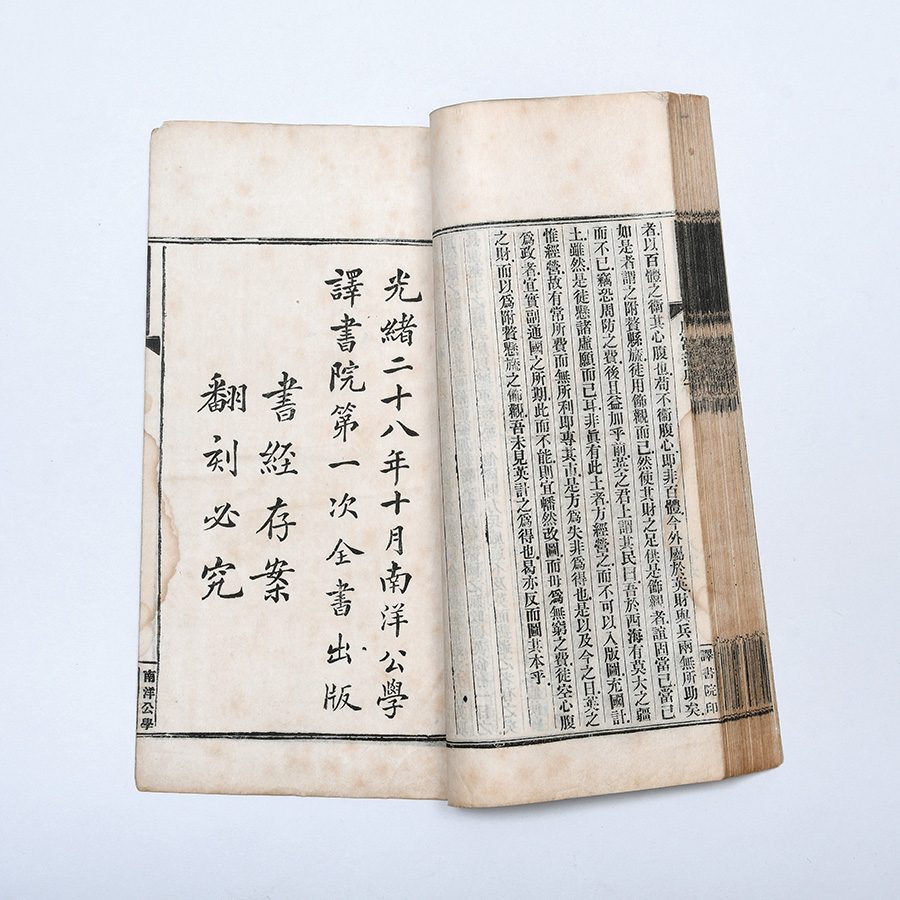 者以百體之衛其心腹也苟不衛腹心即非百體今外屬於英財與兵兩無所助矣
如是者謂之附贅縣旒徒用飾觀而已然使其財之足供是飾觀者誼固當已當已
而不已竊恐周防之費後且益加乎前英之君上謂其民曰吾於西海有莫大之疆
土雖然是徒懸諸虛願而已耳非眞有此土者方經營之而不可以入版圖充國計
惟經營故有常所費而無所利即專其市是方爲失非爲得也是以及今之日英之
爲政者宜實副通國之所期此而不能則宜幡然改圖而毋爲無窮之費徒空心腹
之財而以爲附贅懸旒之飾觀吾未見英計之爲得也曷亦反而圖其本乎
譯書院印
光緒二十八年十月南洋公學
譯書院第一次全書出版
書經存案
翻刻必究
南洋公學